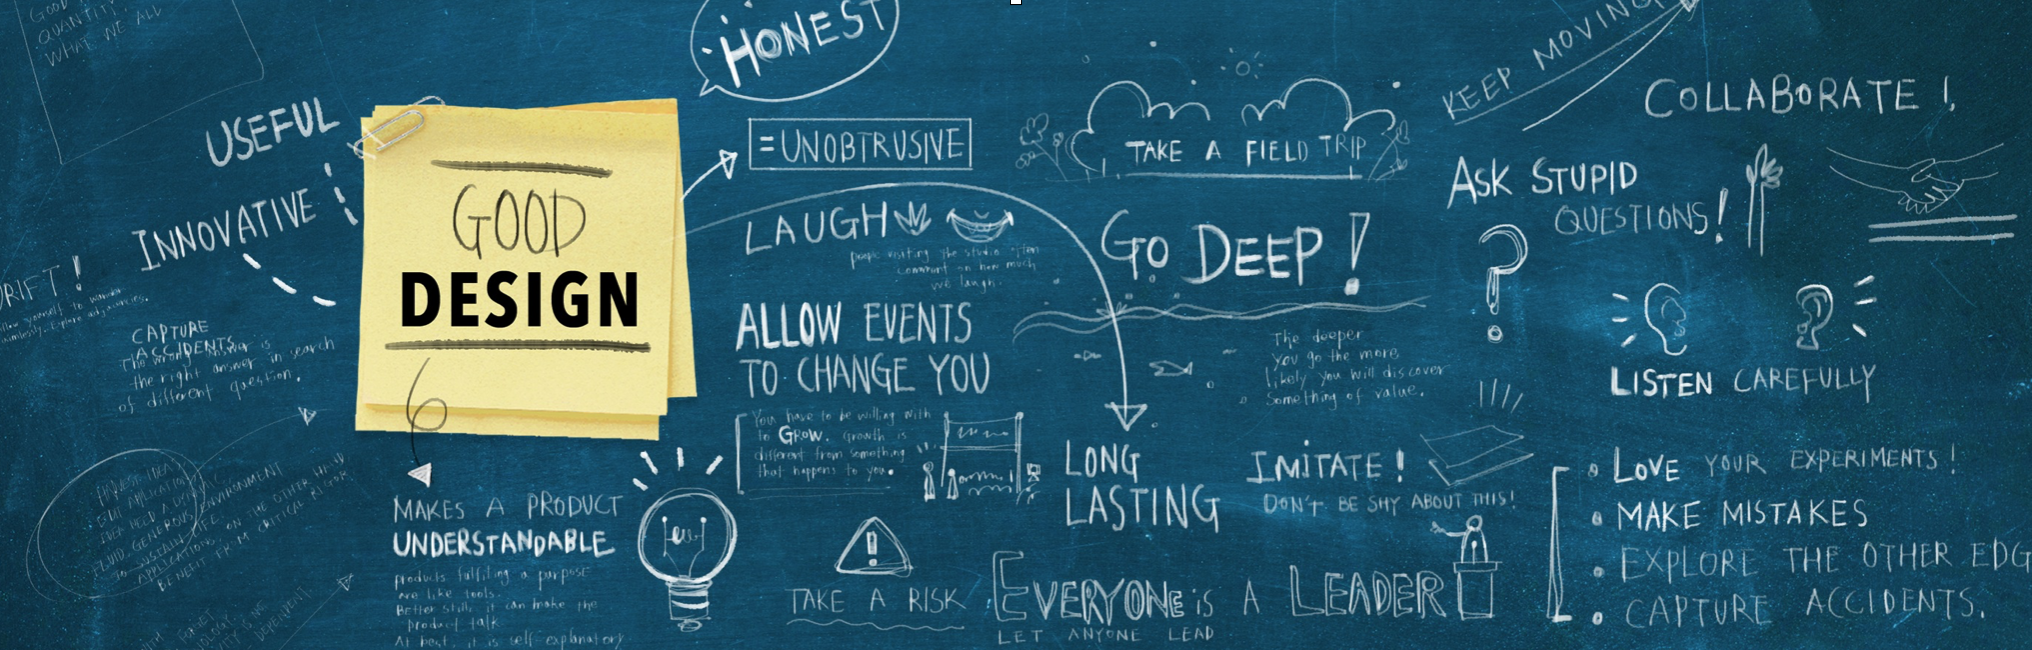 GOOD
QUANTITY.
WHAT WE ALL
HONEST
USEFUL
INNOVATIVE
GOOD
DESIGN
=UNOBTRUSIVE
TAKE A FIELD TRIP
KEEP MOVING
COLLABORATE!,
ASK STUPID
QUESTIONS!
LAUGH
people visiting the studio often
comment on how much
we laugh.
GO DEEP!
The deeper
you go the more
likely you will discover
Something of value.
DRIFT!
allow yourself to wander
aimlessly. Explore adjacencies.
CAPTURE
ACCIDENTS.
The wrong answer is
the right answer in search
of different question.
ALLOW EVENTS
TO CHANGE YOU
You have to be willing with
to GROW. Growth is
different from something
that happens to you.
LISTEN CAREFULLY
LONG
LASTING
IMITATE!
DON'T BE SHY ABOUT THIS!
LOVE YOUR EXPERIMENTS!
MAKE MISTAKES
EXPLORE THE OTHER EDG
CAPTURE ACCIDENTS.
MAKES A PRODUCT
UNDERSTANDABLE
products fulfilling a purpose
are like tools.
Better still, it can make the
product talk
At best, it is self-explanatory
TAKE A RISK
EVERYONE is A LEADER
LET ANYONE LEAD
HARVEST IDEAS
EDIT APPLICATIONS
IDEA NEED A
FLUID, GENEROUS ENVIRONMENT
TO SUSTAIN LIFE.
APPLICATIONS, ON THE OTHER HAND
BENEFIT FROM CRITICAL RIGOR